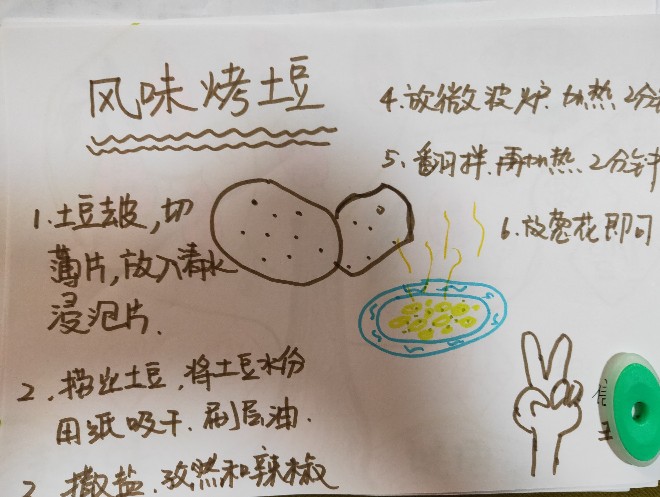 风味烤土豆
1.土豆去皮,切
薄片,放入清水
浸泡片.
2.捞出土豆,将土豆水份
用纸吸干.刷层油.
撒盐.孜然和辣椒
4.放微波炉.加热2分钟
5、翻拌.再加热2分钟
6.放葱花即可